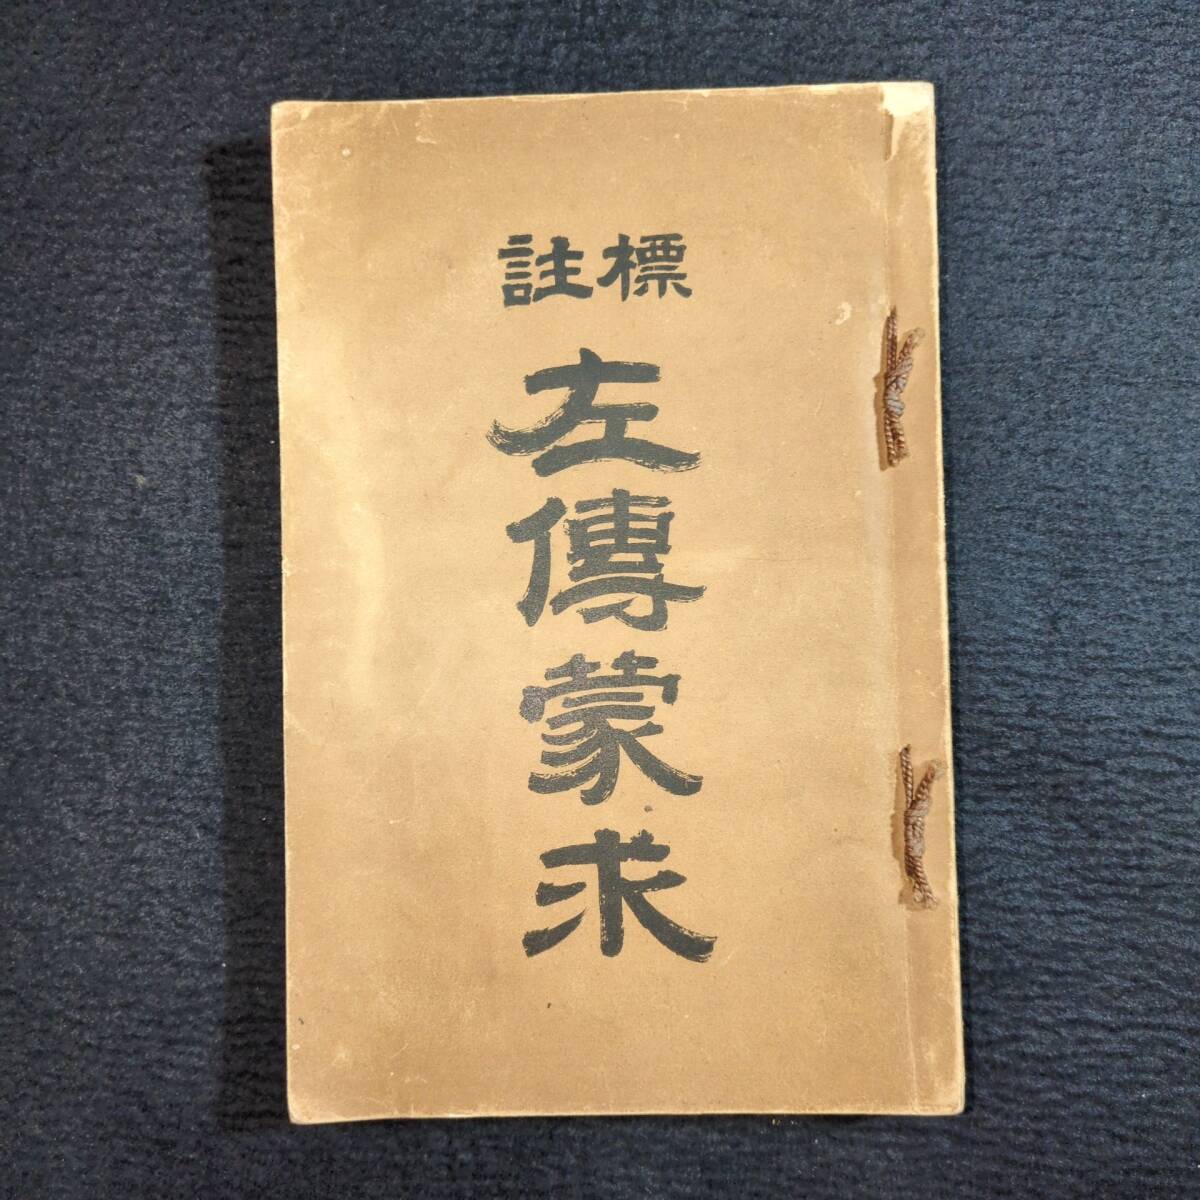 標註
左傳蒙求